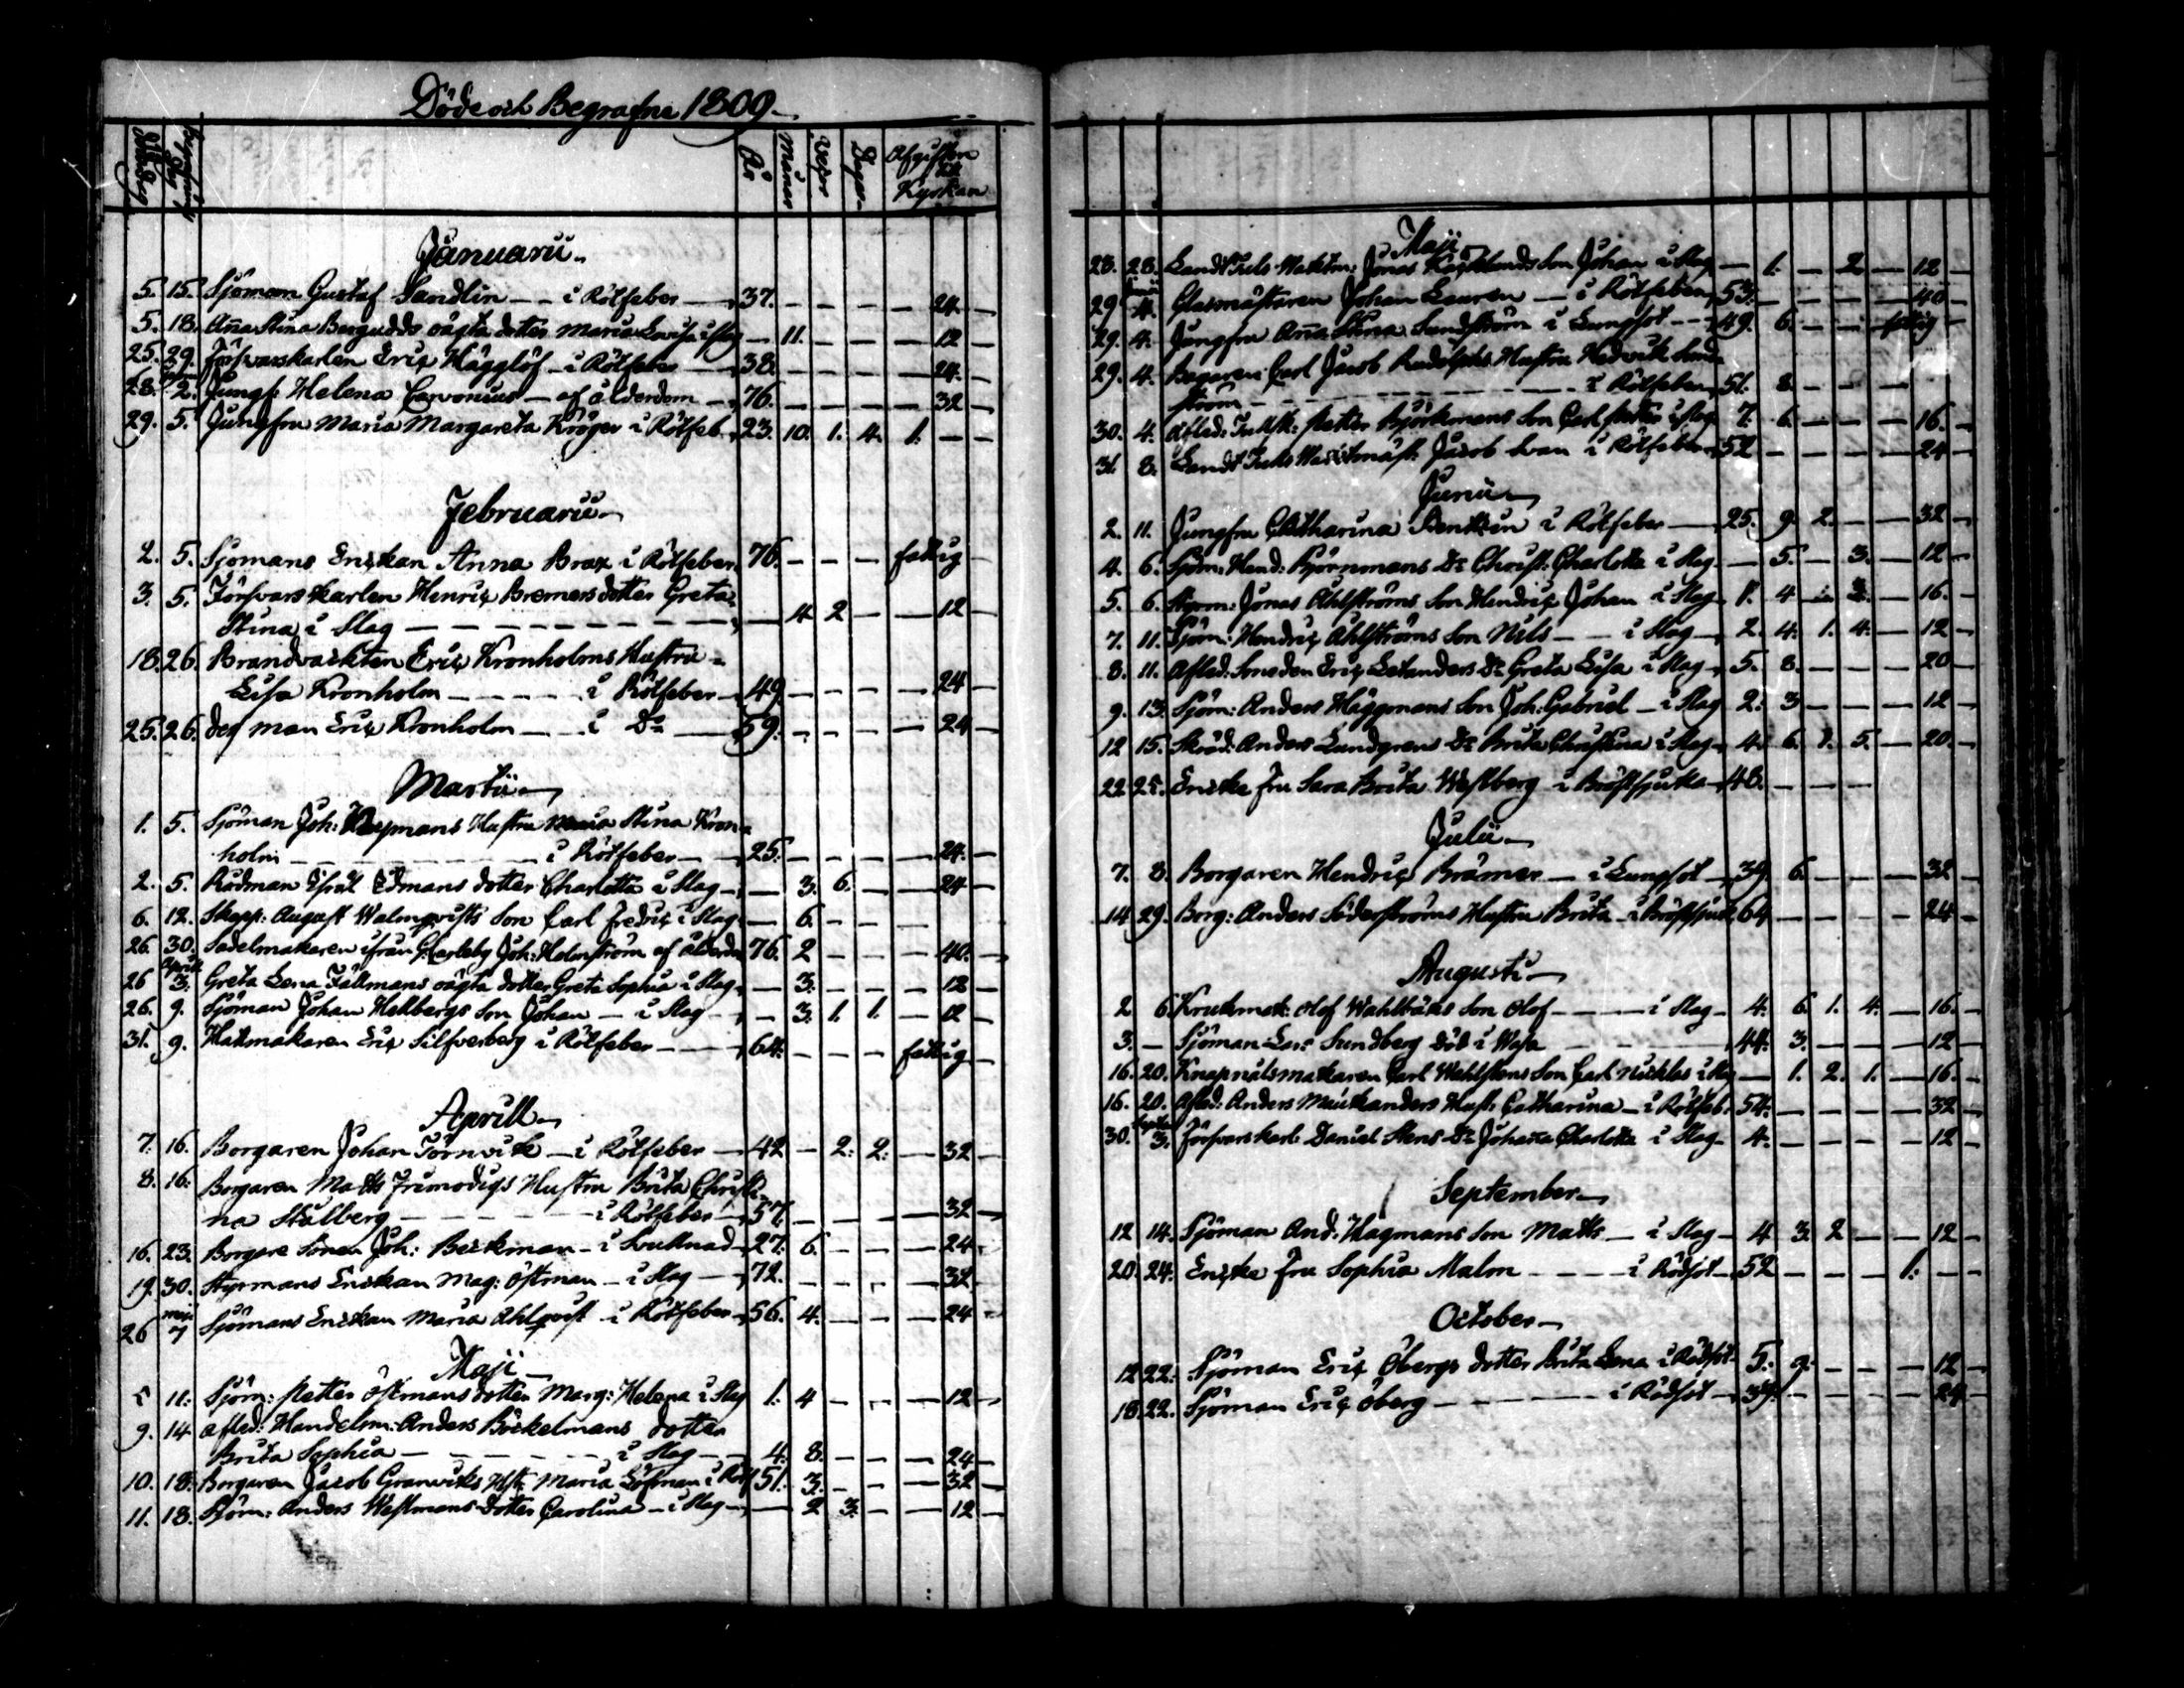 Döde och Begrafne 1809.
Begrafnings Dag År Månar Vekor Dagar Afgiften till Kyrkan
Januarii
5. 15. Sjöman Gustaf Sandlin — i Rötfeber — 37. — — — — 24. —
5. 18. Aña Stina Bergudds oägta dotter Maria Lovisa i Slag — 11. — — — 12 —
25. 29. Försvarskarlen Eric Hägglöf — i Rötfeber — 38. — — — — 24. —
28. 2. Jungf: Helena Carvonius — af ålderdom — 76. — — — — 32 —
29. 5. Jungfru Maria Margareta Kröger i Rötfeb. 23. 10. 1. 4. 1. — —
Februarii
2. 5. Sjömans Enckan Anna Brax i Rötfeber. 76. — — — fattig —
3. 5. Försvarskarlen Henric Bremers dotter Greta
Stina i Slag — — 4. 2 — — 12 —
18. 26. Brandvackten Eric Kronholms Hustru
Lisa Kronholm — i Rötfeber — 49. — — — — 24 —
25. 26. deß man Eric Kronholm — i Do — 59. — — — — 24 —
Martii
1. 5. Sjöman Joh: Hustru Maria Stina Kron-
holm — i Rötfeber — 25. — — — — 24. —
2. 5. Rådman Edmans dotter Charlotta i Slag — — 3. 6. — — 24 —
6. 12. Skepp: August Walmqvists Son Carl Fredric i Slag. — 6. — — —
26. 30. Sadelmakaren ifrån G:Carleby Joh: Holmström af ålderdn 76. 2 — — — 40. —
26 April 3. Greta Lena Fällmans oägta dotter Greta Sophia i Slag. — 3. — — — 12 —
26. 9. Sjöman Johan Hellbergs Son Johan — i Slag — — 3. 1. 1. — 12 —
31. 9. Hattmakaren Eric Silfverberg i Rötfeber — 64. — — — fattig —
Aprill
7. 16. Borgaren Johan Törnvik — i Rötfeber — 42 — 2. 2. — 32 —
8. 16. Borgaren Matts Frimodigs Hustru Brita Christi-
na Stålberg — i Rötfeber — 57. — — — — 32 —
16. 23. Borgare Sonen Joh: Beckman — i Svullnad — 27. 6. — — — 24 —
19. 30. Styrmans Enckan Mag: Östman — i Slag — 72. — — — — 32 —
26 maji 7 Sjömans Enckan Maria Ahlqvist — i Rötfeber — 56. 4. — — — 24 —
Maji
5 11. Sjöm: Petter Östmans dotter Marg: Helena i Slag 1. 4 — — — 12 —
9. 14 Afled: Handelsm: Anders Böckelmans dotter
Brita Sophia — i Slag — 4. 8. — — — 24 —
10. 18. Borgaren Jacob Granviks Hst: Maria Löfman i Rötf 51. 3. — — — 32 —
11. 18. Sjöm: Anders Westmans dotter Carolina — i Slag — — 2 3. — — 12 —
Maji
28. 28. Landt Tuls Vaktm: Jonas Son Johan i Slag — 1. — 2. — 12 —
29 Junii 4. Glasmästaren Johan Lauren — i Rötfeber 53. — — — — 40 —
29. 4. Jungfru Aña Stina Sundström i Lungsot — 49. 6. — — — fattig —
29. 4. Bagaren Carl Jacob Rudolphs Hustru Hedvik Sund-
ström — i Rötfeber, 51. 8. — — —
30. 4. Afled: Petter Björkmans Son Carl Petter i Slag 7. 6. — — — 16. —
31. 8. Landt Tuls Jacob Svan i Rötfeber, 52 — — — — 24 —
Junii
2. 11. Jungfru Catharina i Rötfeber — 25. 9. 2. — — 32 —
4. 6. Sjöm: Hend: Björnmans Dr Christ: Charlotta i Slag. — 5. — 3. — 12 —
5. 6. Styrm: Jonas Ahlströms Son Hendric Johan i Slag 1. 4 — 3. — 16. —
7. 11. Sjöm: Hendric Ahlströms Son Nils — i Slag — 2. 4. 1. 4. — 12 —
8. 11. Afled: Eric Dr Greta Lisa i Slag, 5. 8. — — — 20 —
9. 13. Sjöm: Anders Häggmans Son Joh: Gabriel — i Slag 2. 3 — — — 12 —
12 15. Skräd: Anders Lundgrens Dr Brita Christina i Slag, 4. 6. 1. 5. — 20. —
22. 25. Encke fru Sara Brita Westberg i Bröstsjuka 48. — — —
Julii
7. 8. Borgaren Hendric Brämer — i Lungsot — 39. 6. — — — 32 —
14 29. Borg: Anders Söderströms Hustru Brita — i Bröstsjuk 64 — — — — 24 —
Augusti
2 6. Krukmak: Olof Wahlbäks Son Olof — i Slag — 4. 6. 1. 4. — 16. —
3. — Sjöman Lars Sundberg död i Wasa — 44. 3. — — — 12 —
16. 20. Knapnålsmakaren Carl Wahlstens Son Carl Nicklas i Slag — 1. 2. 1. — 16. —
16. 20. Afled: Anders Hust: Catharina — i Rötfeb. 54. — — — — 32 —
30. 3. Försvarskarl: Daniel Stens Dr Johaña Charlotta i Slag — 4. — — — — 12 —
September
12 14. Sjöman And: Hagmans Son Matts — i Slag — 4 3. 2 — — 12 —
20. 24. Encke fru Sophia Malm — i Rödsot — 52 — — — 1. — —
October
12 22. Sjöman Eric Öbergs dotter Brita Lena i Rödsot 5. 9. — — — 12 —
18. 22. Sjöman Eric Öberg — i Rödsot — 39. — — — — 24 —